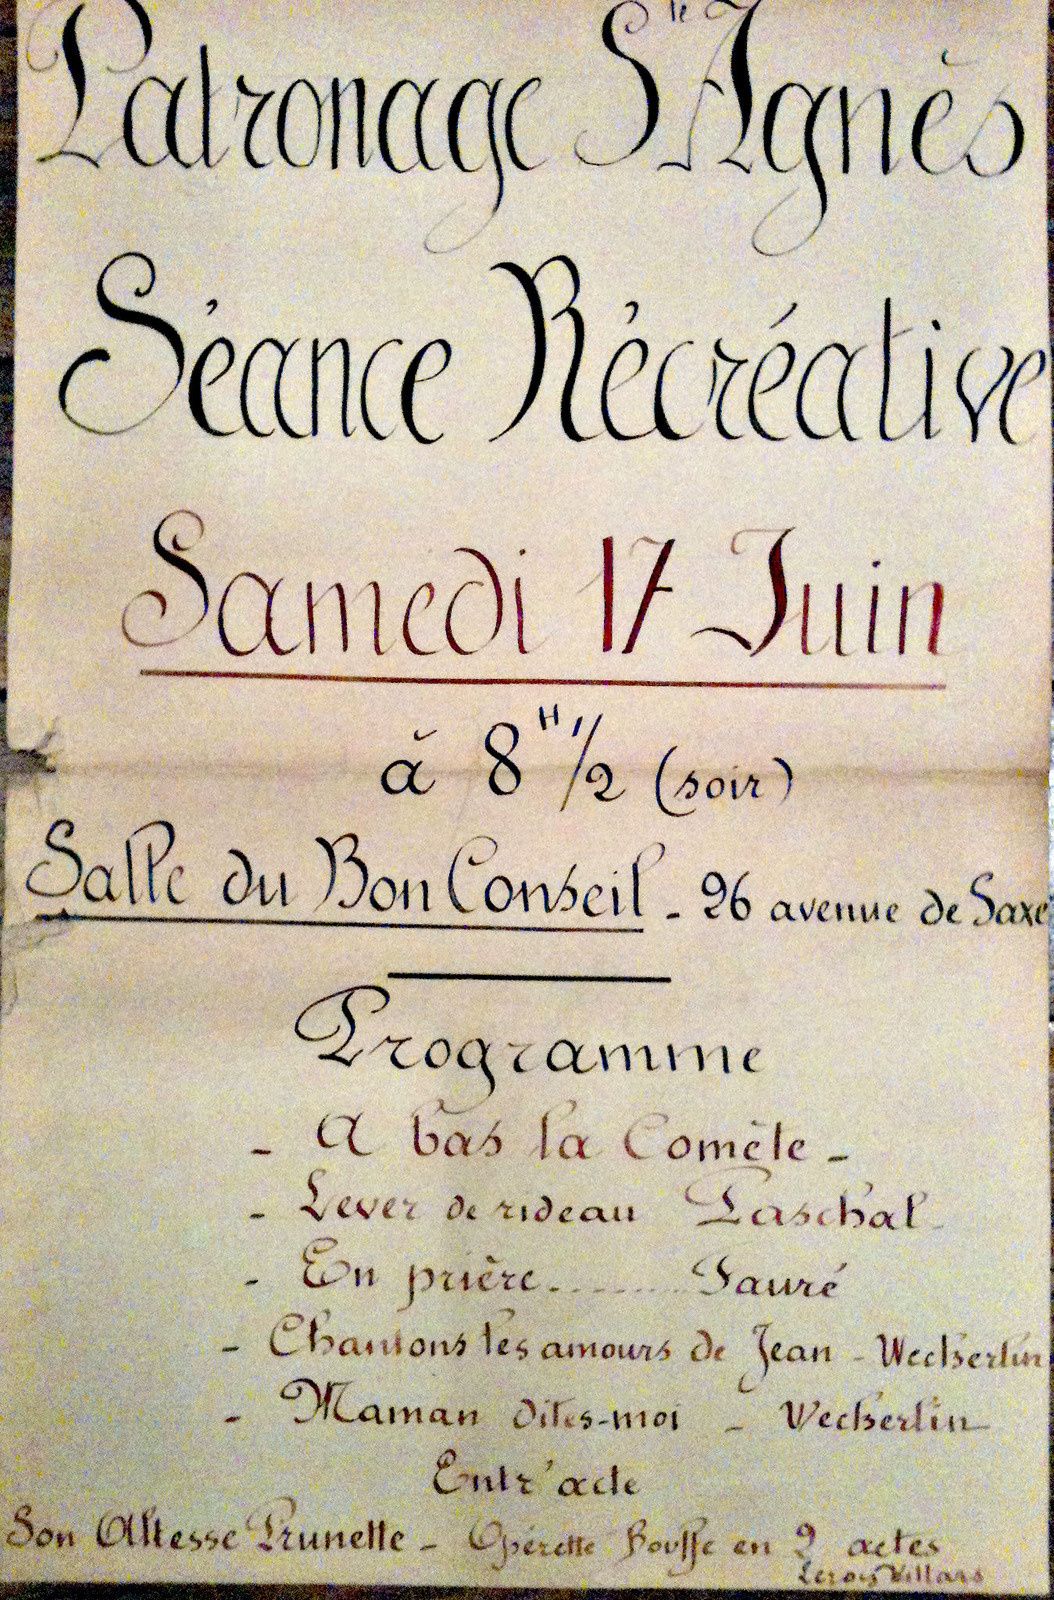 Patronage Ste Agnès
Séance Récréative
Samedi 17 Juin
à 8 H 1/2 (soir)
Salle du Bon Conseil - 26 avenue de Saxe
Programme
- A bas la Comète -
- Lever de rideau Paschal -
- En prière........ Fauré
- Chantons les amours de Jean - Weckerlin
- Maman dites-moi - Weckerlin
Entr'acte
Son Altesse Prunette - Opérette Bouffe en 2 actes
Leroy Villars